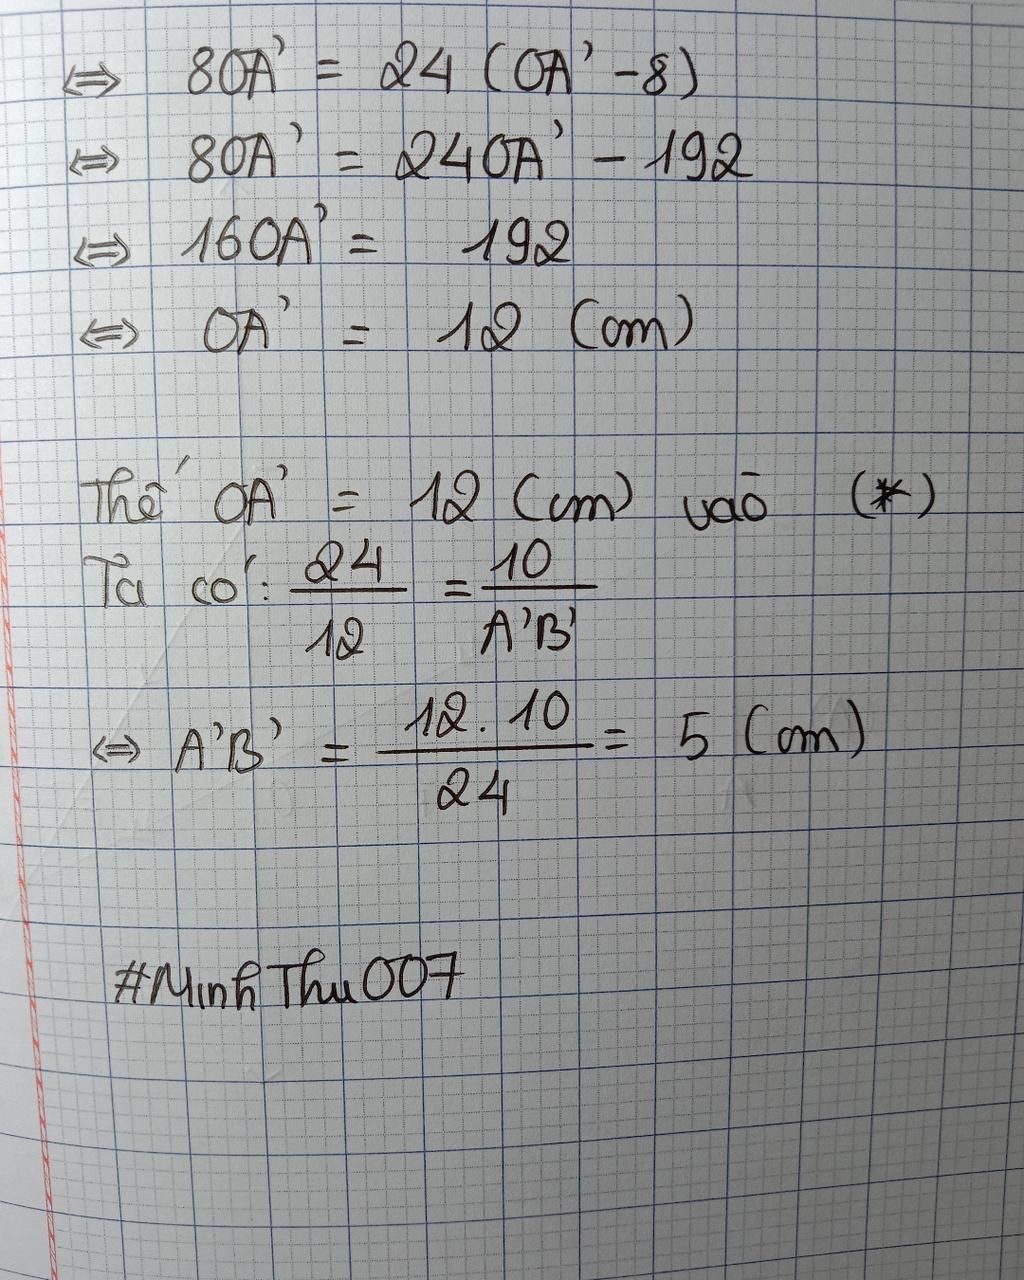 ⇔ 8OA' = 24 (OA' - 8)
⇔ 8OA' = 24OA' - 192
⇔ 16OA' = 192
⇔ OA' = 12 (cm)
Thế OA' = 12 (cm) vào (*)
Ta có: 24/12 = 10/A'B'
⇔ A'B' = 12.10/24 = 5 (cm)
#MinhThu007